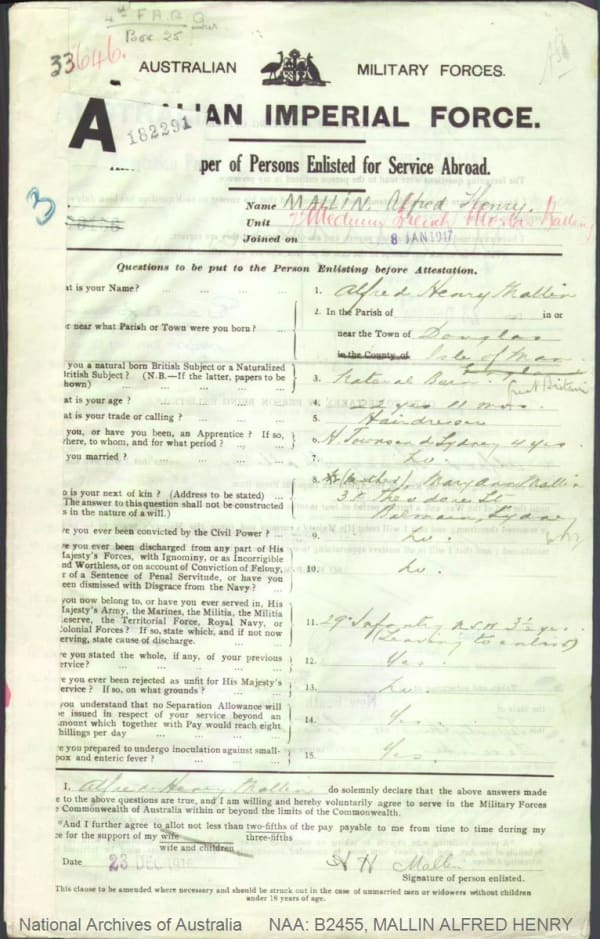 4th F.A.B.
Box 25
33646.
AUSTRALIAN MILITARY FORCES.
A
ALIAN IMPERIAL FORCE.
182291
per of Persons Enlisted for Service Abroad.
3
Name MALLIN, Alfred Henry.
Unit Medium Trench Mortar Battery
Joined on 8 JAN 1917
Questions to be put to the Person Enlisting before Attestation.
at is your Name? ... 1. Alfred Henry Mallin
2. In the Parish of in or
r near what Parish or Town were you born? ... near the Town of Douglas
in the County of Isle of Man
Great Britain
you a natural born British Subject or a Naturalized
British Subject? (N.B.—If the latter, papers to be
hown) 3. Natural Born
at is your age? 4. 22 yrs 11 mos.
at is your trade or calling? 5. Hairdresser
you, or have you been, an Apprentice? If so,
where, to whom, and for what period? 6. H. Townsend Sydney 4 yrs.
you married? 7. No.
o is your next of kin? (Address to be stated) ...
The answer to this question shall not be construed
s in the nature of a will.)
8. (Mother) Mary Ann Mallin
3 Theodore St
Balmain, Sydney
NSW
ve you ever been convicted by the Civil Power? ... 9. No.
ve you ever been discharged from any part of His
Majesty's Forces, with Ignominy, or as Incorrigible
nd Worthless, or on account of Conviction of Felony,
r of a Sentence of Penal Servitude, or have you
een dismissed with Disgrace from the Navy? ... 10. No.
you now belong to, or have you ever served in, His
Majesty's Army, the Marines, the Militia, the Militia
eserve, the Territorial Force, Royal Navy, or
olonial Forces? If so, state which, and if not now
erving, state cause of discharge.
11. 29th Infantry A.M.F. 3½ yrs.
(Leaving to enlist)
ve you stated the whole, if any, of your previous
ervice? 12. Yes.
ve you ever been rejected as unfit for His Majesty's
ervice? If so, on what grounds? 13. No.
you understand that no Separation Allowance will
be issued in respect of your service beyond an
mount which together with Pay would reach eight
hillings per day 14. Yes.
ve you prepared to undergo inoculation against small-
pox and enteric fever? 15. Yes.
I, Alfred Henry Mallin do solemnly declare that the above answers made
e to the above questions are true, and I am willing and hereby voluntarily agree to serve in the Military Forces
e Commonwealth of Australia within or beyond the limits of the Commonwealth.
*And I further agree to allot not less than two-fifths of the pay payable to me from time to time during my
three-fifths
ce for the support of my wife
wife and children
Date 23 DEC 1916 A H Mallin
Signature of person enlisted.
This clause to be amended where necessary and should be struck out in the case of unmarried men or widowers without children
under 18 years of age.
National Archives of Australia NAA: B2455, MALLIN ALFRED HENRY